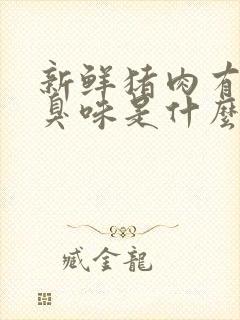 新鲜猪肉有
臭味是什麼
臧金龍